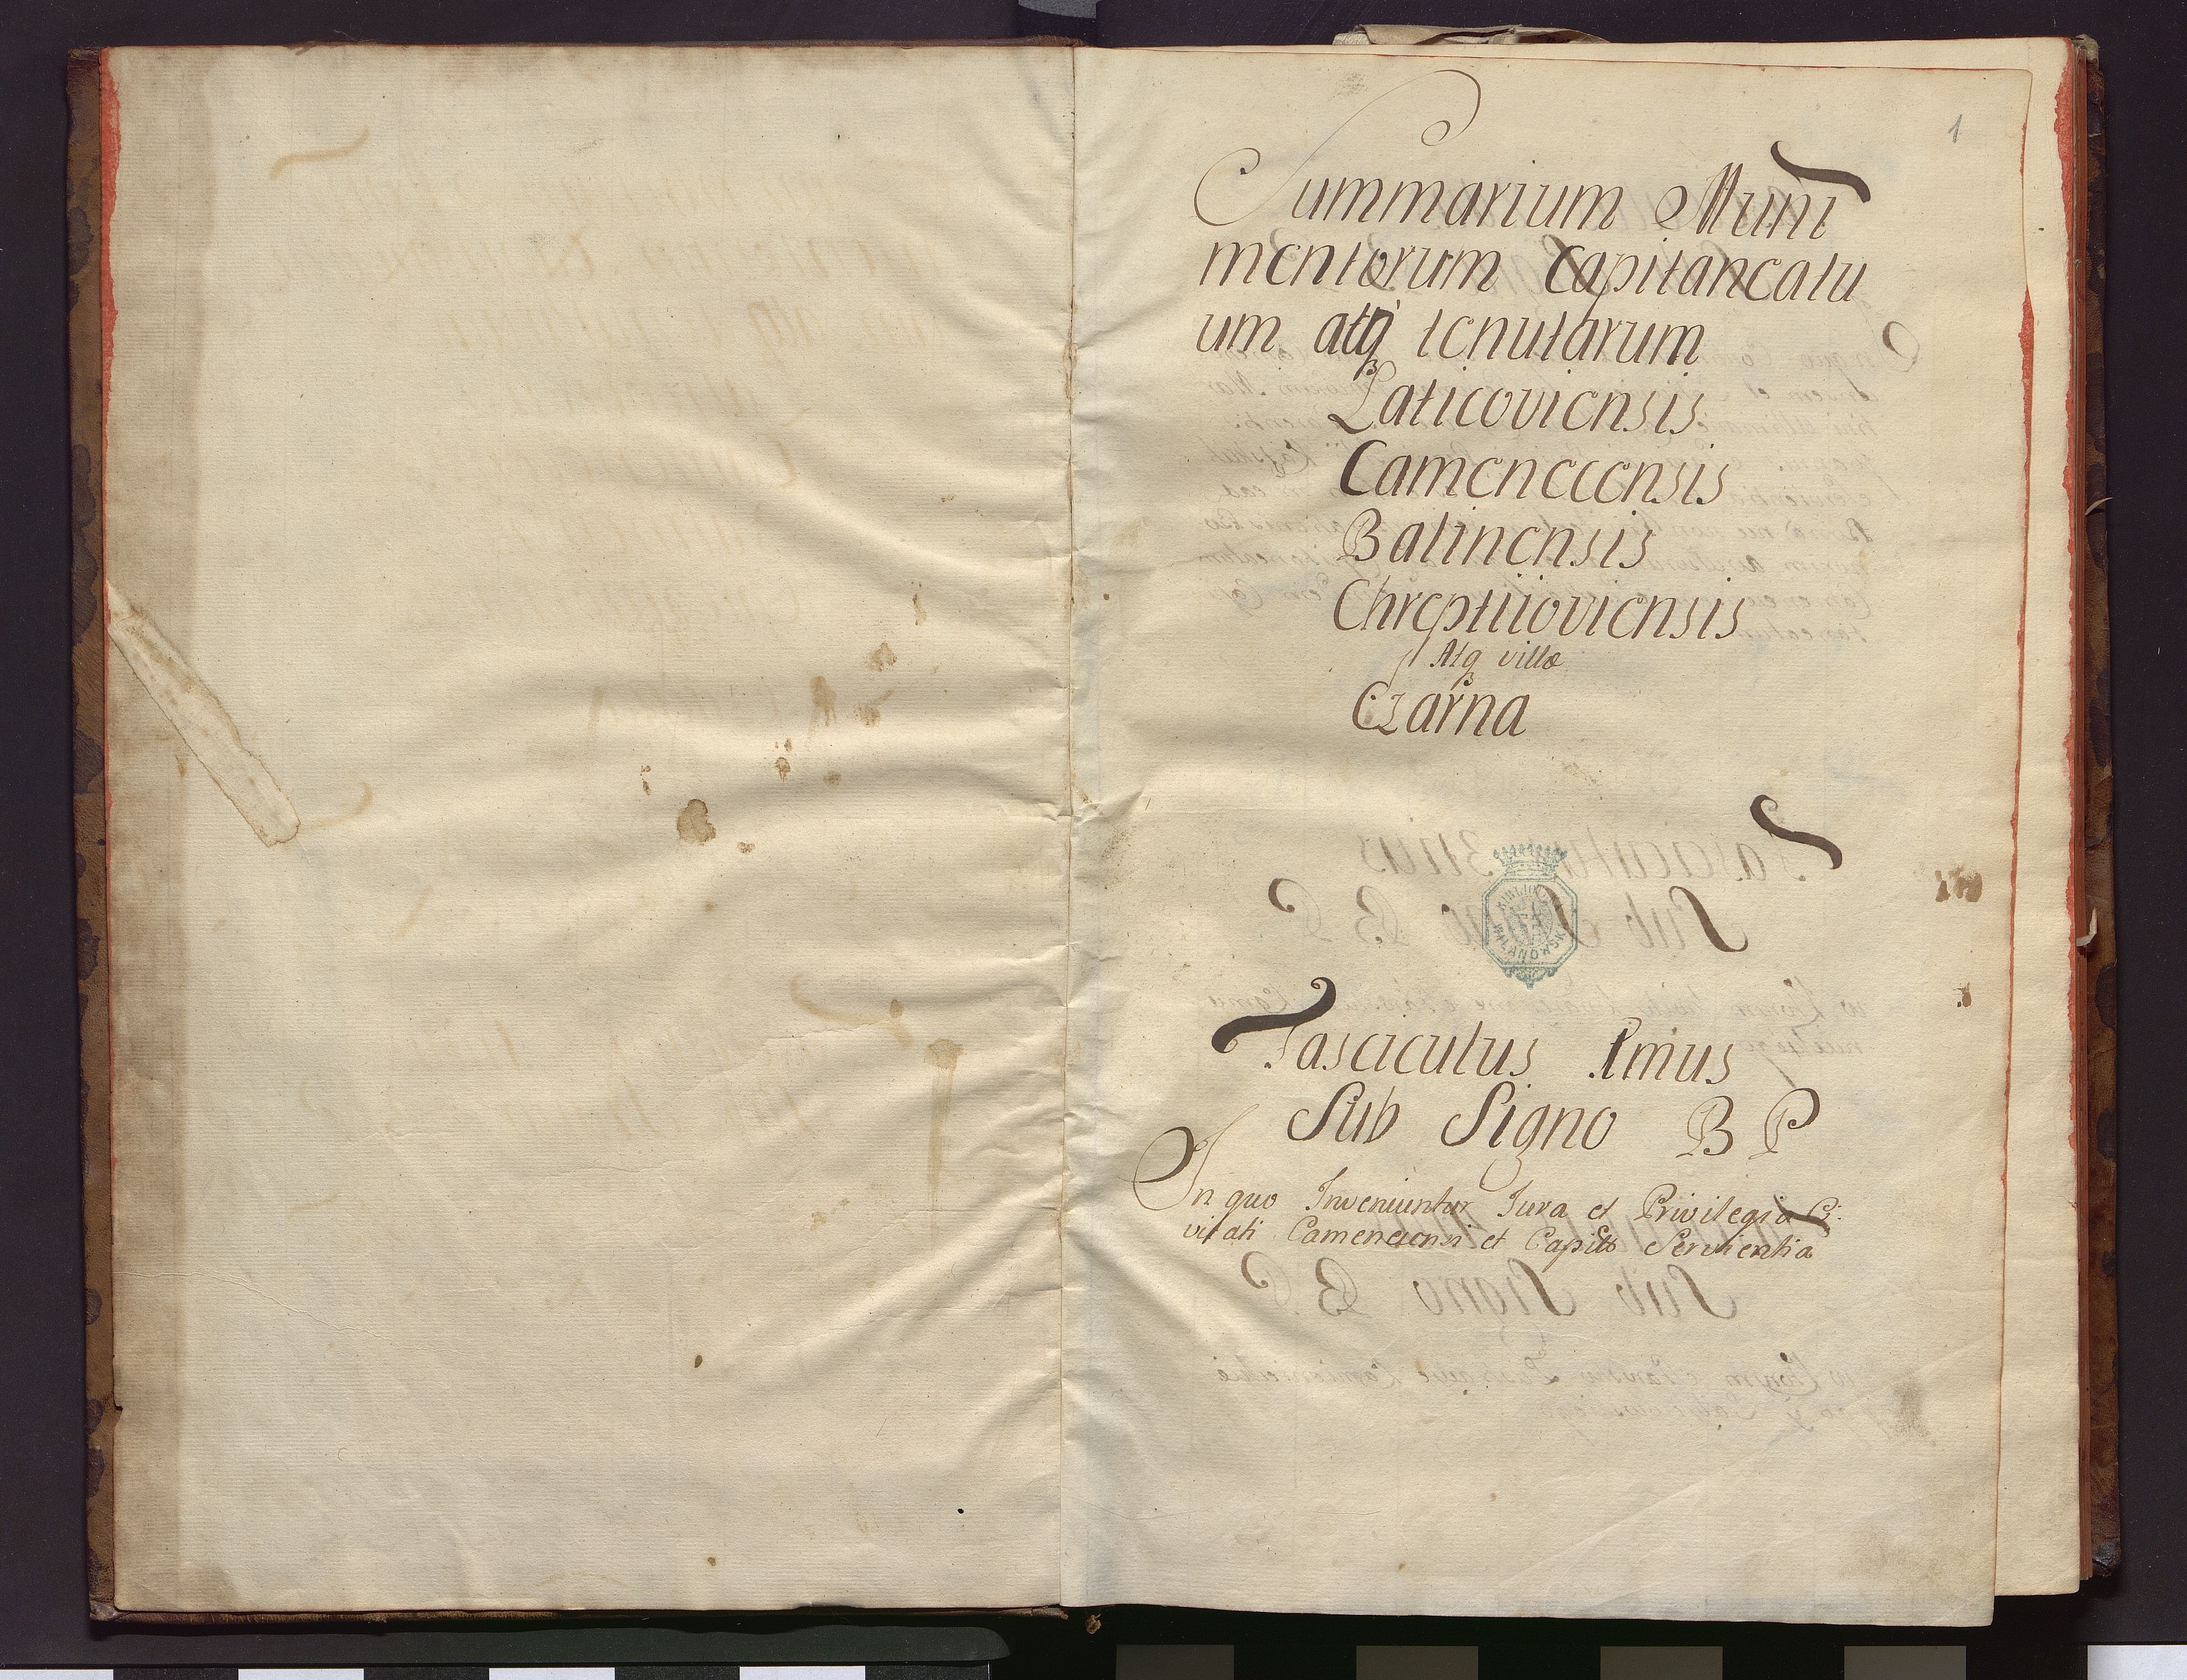 1
Summarium Muni
mentorum Capitaneatu
um atq tenutarum
Laticoviensis
Camenecensis
Batinensis
Chreptiioviensis
Atq villæ
Czarna
BIBLIOTEKA
WILANOWSKA
Fasciculus Imus
Sub Signo B P
In quo Inveniuntur Jura et Privilegia Ci:
vitati Camenecensi et Capitts Servientia